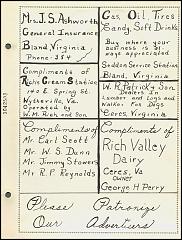 Mrs. J. S. Ashworth
General Insurance
Bland, Virginia
Phone-354
Compliments of
Richie Cream Station
140 E Spring St.
Wytheville, Va
Operated by
W. M. Rich and Son
Compliments of
Mr. Carl Scott
Mr. W. S. Dunn
Mr. Jimmy Stowers
Mr. R. P. Reynolds
Gas, Oil, Tires
Candy, Soft Drinks
Buy where your
business is al-
ways appreciated
Seddon Service Station
Bland, Virginia
W. R. Patrick & Son
Dealers In
Lumber and Logs and
Walker Fox Dogs
Ceres Virginia
Compliments of
Rich Valley
Dairy
Ceres, Va
Owner
George H Perry
Please Patronize
Our Advertisers